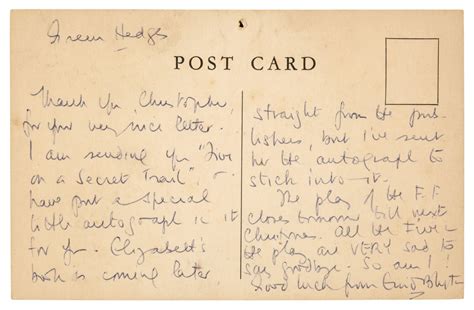 Green Hedges
POST CARD
Thank you, Christopher,
for your very nice letter.
I am sending you "Five
on a Secret Trail". I
have put a special
little autograph in it
for you. Elizabeth's
book is coming later
straight from the pub-
lishers, but I've sent
her the autograph to
stick into it.
The play of the F.F.
closes tomorrow till next
Christmas. All the Five in
the play are VERY sad to
say goodbye. So am I!
Good luck from Enid Blyton